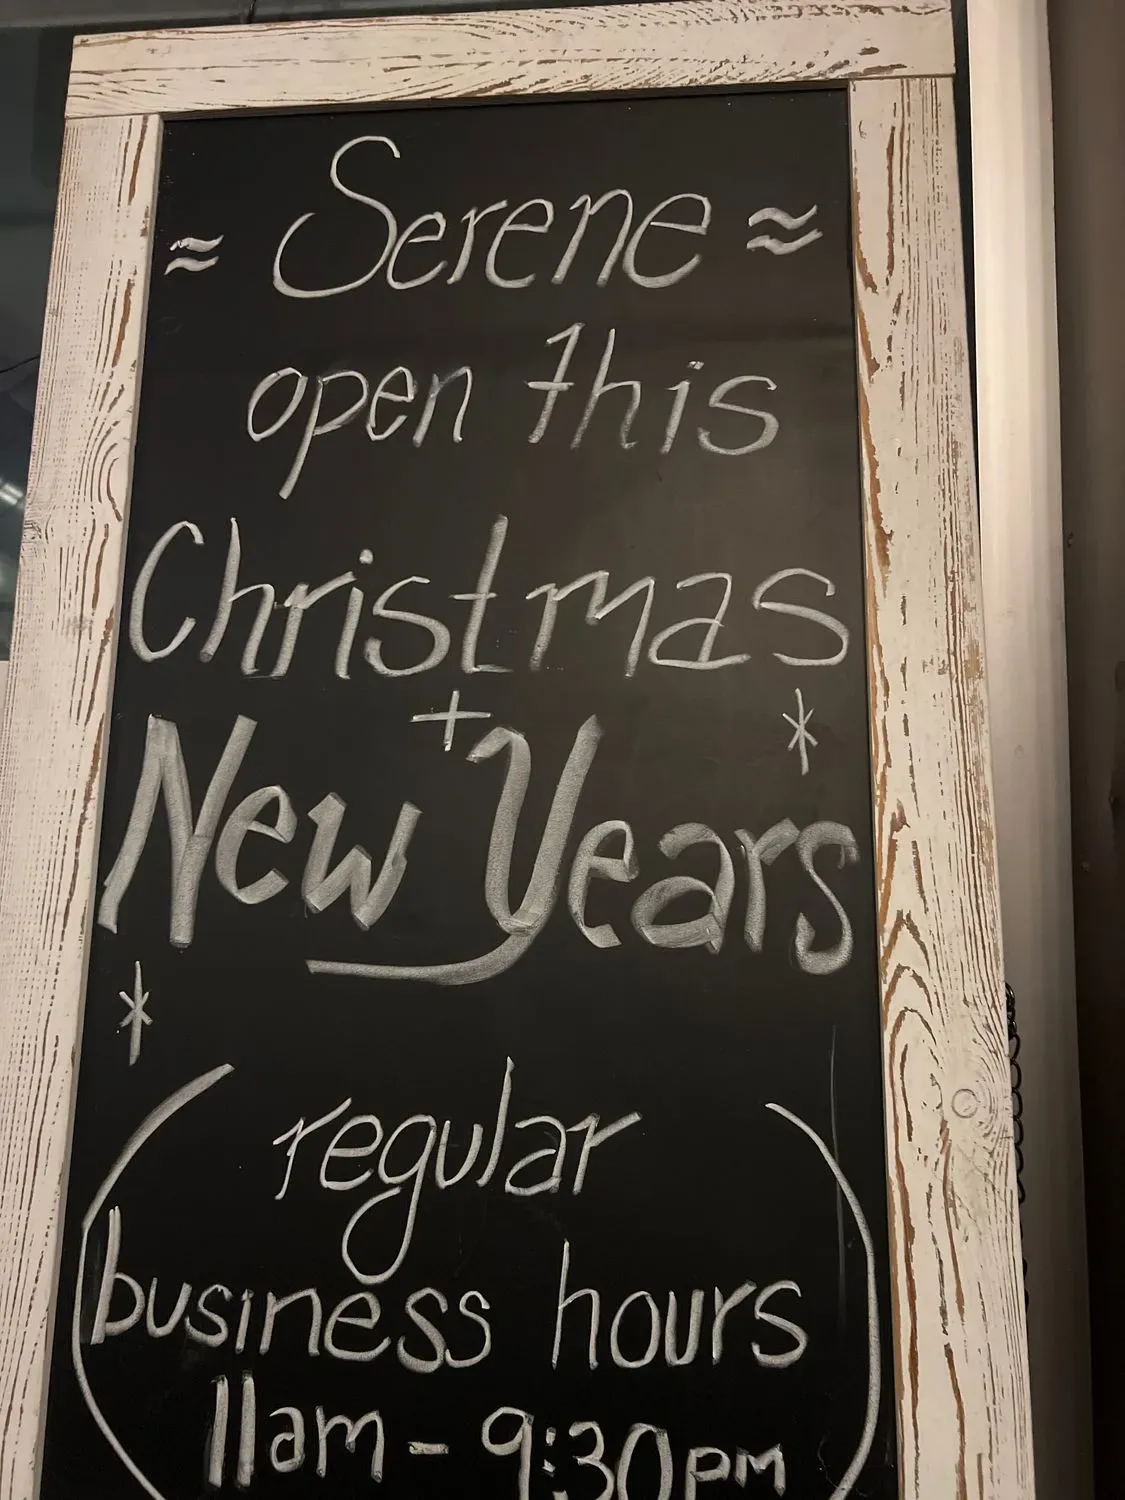 ≈ Serene ≈
open this
Christmas
+
New Years
(regular
business hours
11am - 9:30pm)